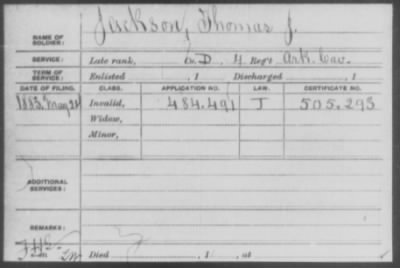 NAME OF SOLDIER: Jackson, Thomas J.
SERVICE: Late rank, Co. D, 4 Reg't Ark. Cav.
TERM OF SERVICE: Enlisted , 1 Discharged , 1
DATE OF FILING. CLASS. APPLICATION NO. LAW. CERTIFICATE NO.
1883, May Invalid, 484.491 J 505.293
Widow,
Minor,
ADDITIONAL SERVICES:
REMARKS:
Died , 1 , at